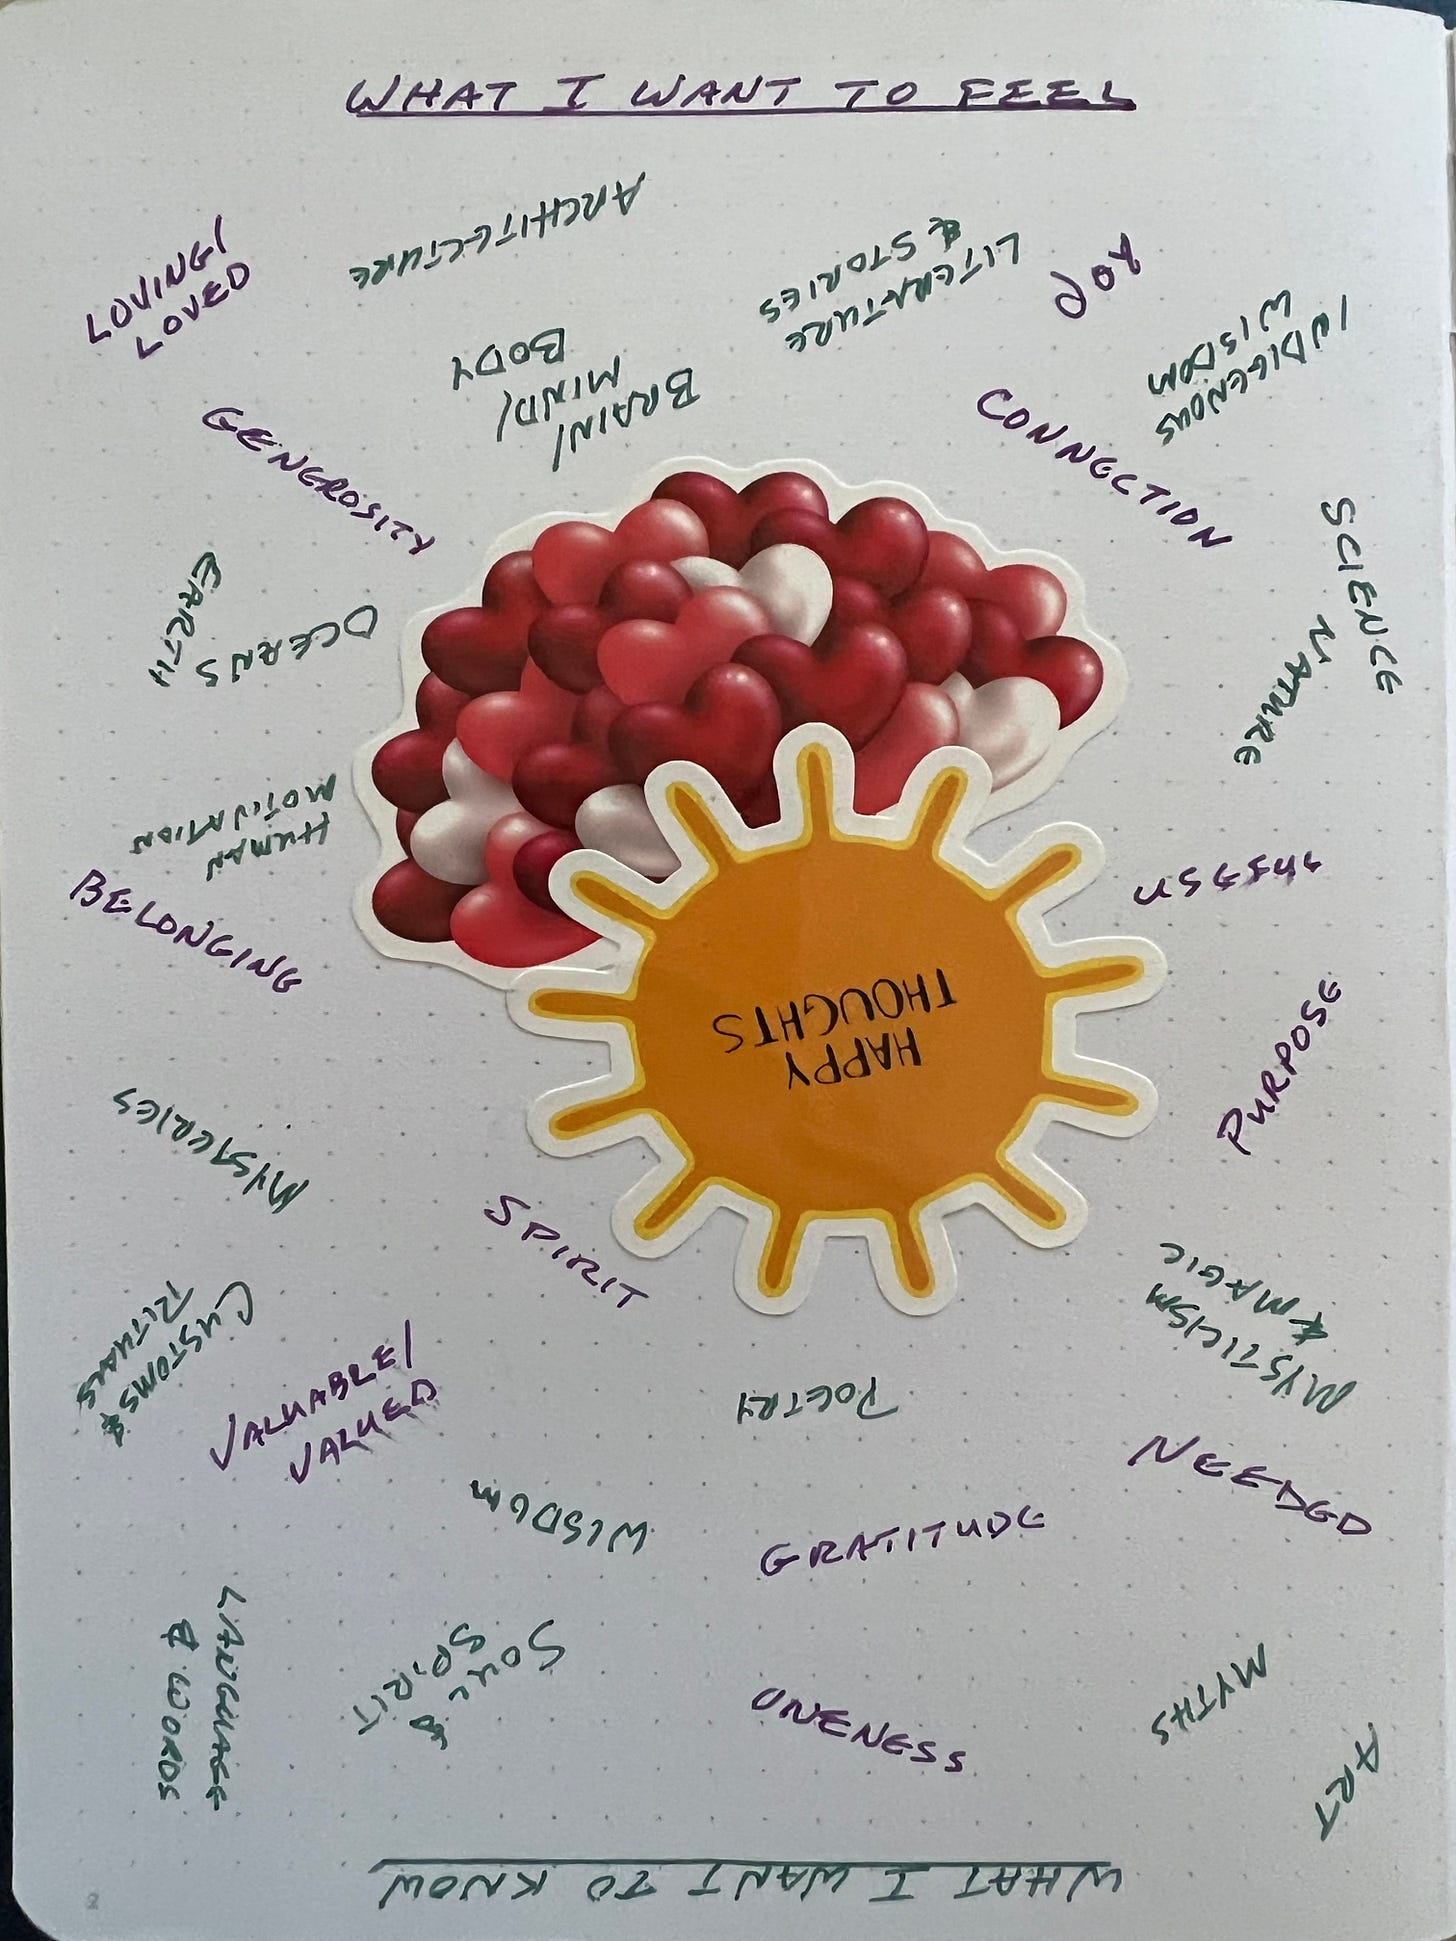 WHAT I WANT TO FEEL
LOVING/
LOVED
JOY
GENEROSITY
CONNECTION
BELONGING
USEFUL
PURPOSE
SPIRIT
VALUABLE/
VALUED
NEEDED
GRATITUDE
ONENESS
HAPPY
THOUGHTS
WHAT I WANT TO KNOW
ART
MYTHS
SOUL &
SPIRIT
LANGUAGE
& WORDS
WISDOM
POETRY
MYSTICISM
& MAGIC
CUSTOMS &
RITUALS
MYSTERIES
HUMAN
MOTIVATION
NATURE
SCIENCE
OCEANS
EARTH
BRAIN/
MIND/
BODY
INDIGENOUS
WISDOM
LITERATURE
& STORIES
ARCHITECTURE
2